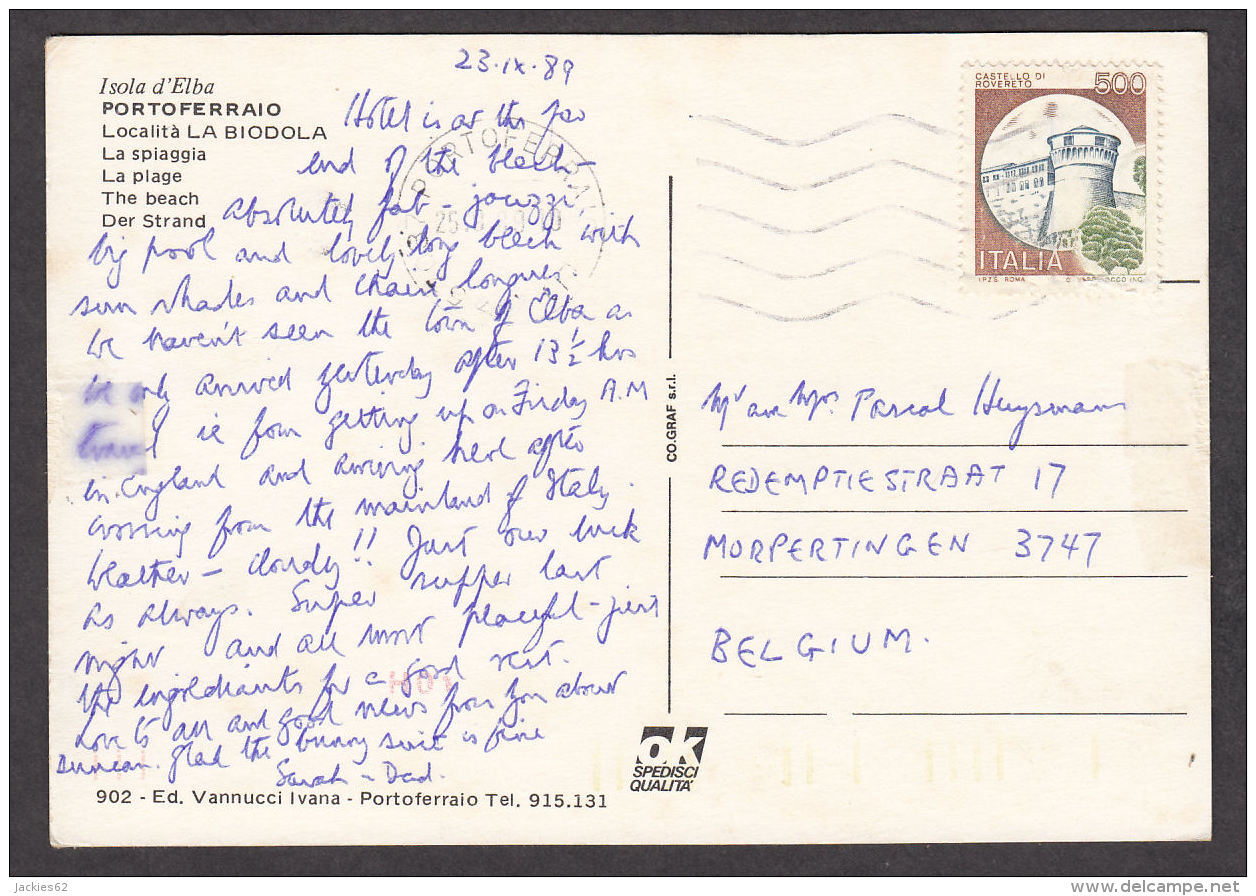 23·IX·89
Isola d'Elba
PORTOFERRAIO
Località LA BIODOLA
La spiaggia
La plage
The beach
Der Strand
Hotel is at the far
end of the beach
absolutely fab - jacuzzi
big pool and lovely long beach with
sun shades and chaise longues
We haven't seen the town of Elba as
we only arrived yesterday after 13 ½ hrs
travel ie from getting up on Friday A.M
in England and arriving here after
crossing from the mainland of Italy.
Weather - cloudy!! Just our luck
as always. Super supper last
night and all most peaceful - just
the ingrediants for a good rest.
Love to all and good news from you about
Duncan. glad the bunny suit is fine
Sarah - Dad.
902 - Ed. Vannucci Ivana - Portoferraio Tel. 915.131
PORTOFERRAIO
25
CO.GRAF s.r.l.
ok
SPEDISCI
QUALITA'
CASTELLO DI
ROVERETO
500
ITALIA
I.P.Z.S. ROMA
Mr and Mrs. Pascal Huysmans
REDEMPTIESTRAAT 17
MORPERTINGEN 3747
BELGIUM.
jackies62
www.delcampe.net